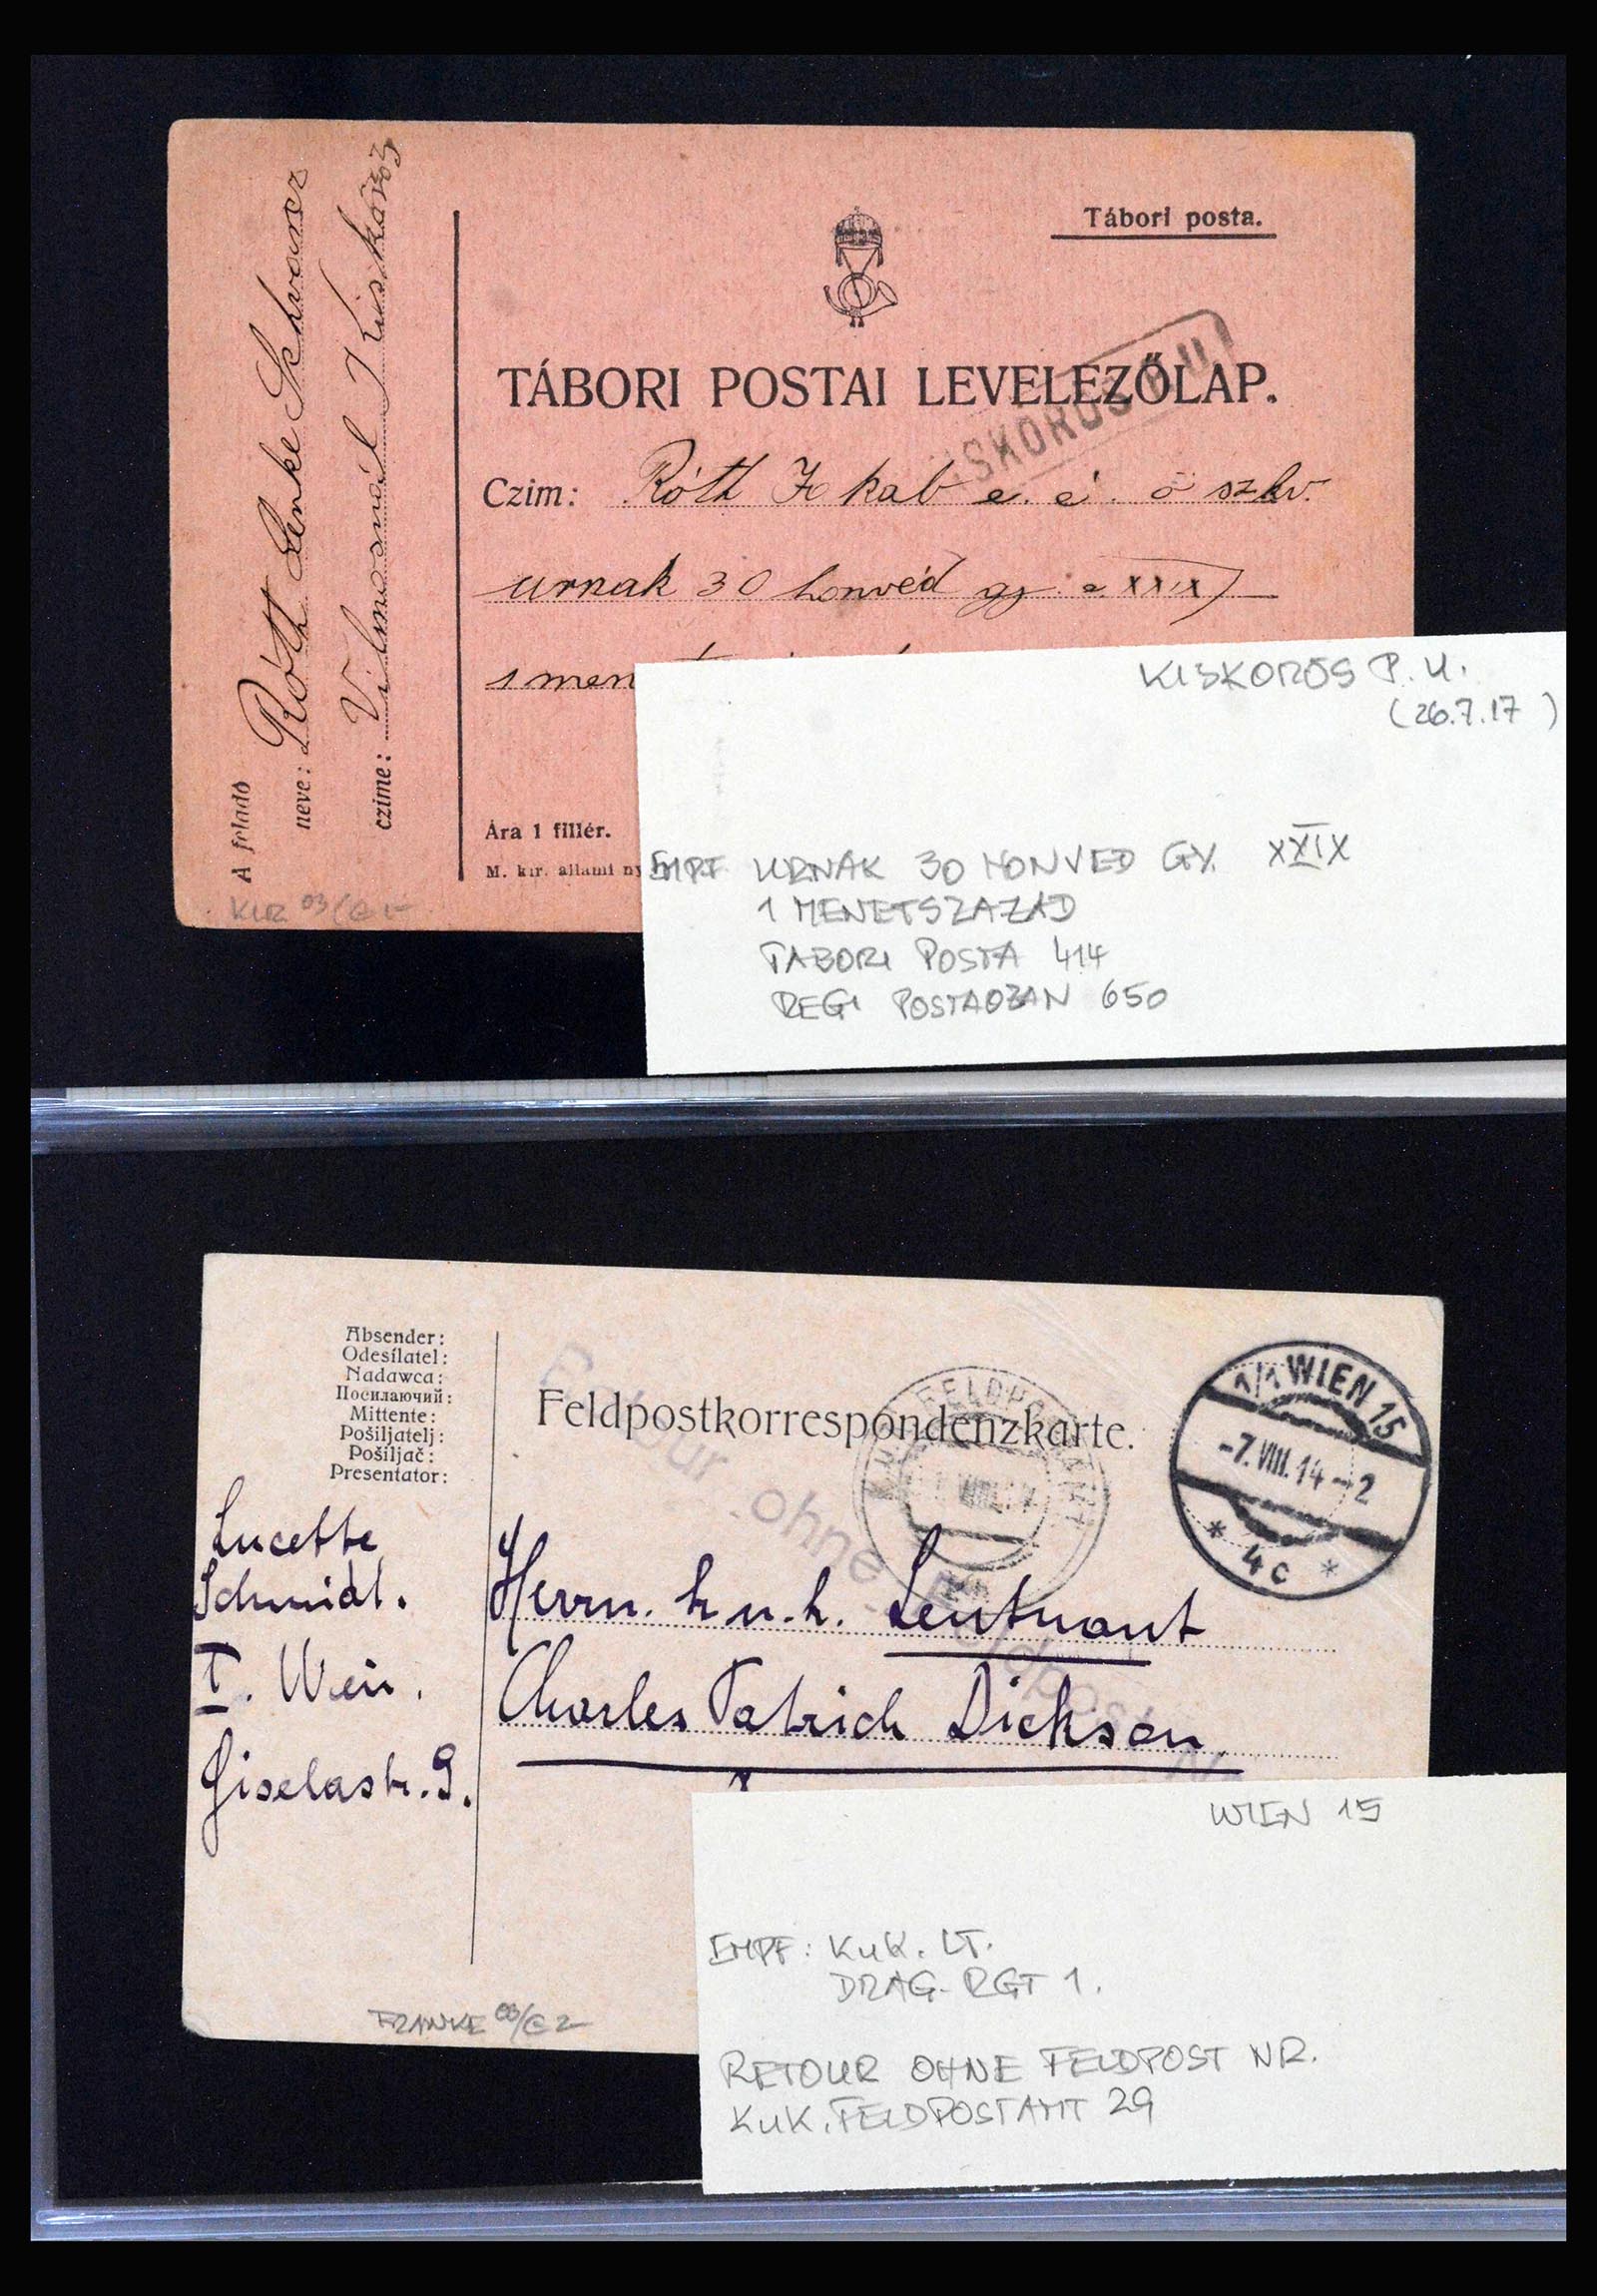 Tábori posta.
TÁBORI POSTAI LEVELEZŐLAP.
SKŐRÖS P.U.
Czim: Róth Jakab e. é. ő szkv.
urnak 30 honvéd gy. e. XXIX
1 men
Ára 1 fillér.
M. kir. állami ny
A feladó
neve: Róth Lenke Schwarcz
czime: Vilmosnál Kiskőrös
KISKOROS P.U.
(26.7.17)
EMPF URNAK 30 HONVED GY. XXIX
1 MENETSZAZAD
TABORI POSTA 414
REGI POSTAOZAN 650
Absender:
Odesílatel:
Nadawca:
Посилаючий:
Mittente:
Pošiljatelj:
Pošiljač:
Presentator:
Feldpostkorrespondenzkarte.
Retour ohne Feldpost Nr.
K.u.K. FELDPOSTAMT
1/1 WIEN 15
-7.VIII.14-2
* 4c *
Lucette
Schmidl.
I. Wien.
Giselastr. 9.
Herrn. k.u.k. Leutnant
Charles Patrick Dickson
FRANKE 03/G2
WIEN 15
EMPF: KuK. LT.
DRAG-RGT 1.
RETOUR OHNE FELDPOST NR.
KuK. FELDPOSTAMT 29